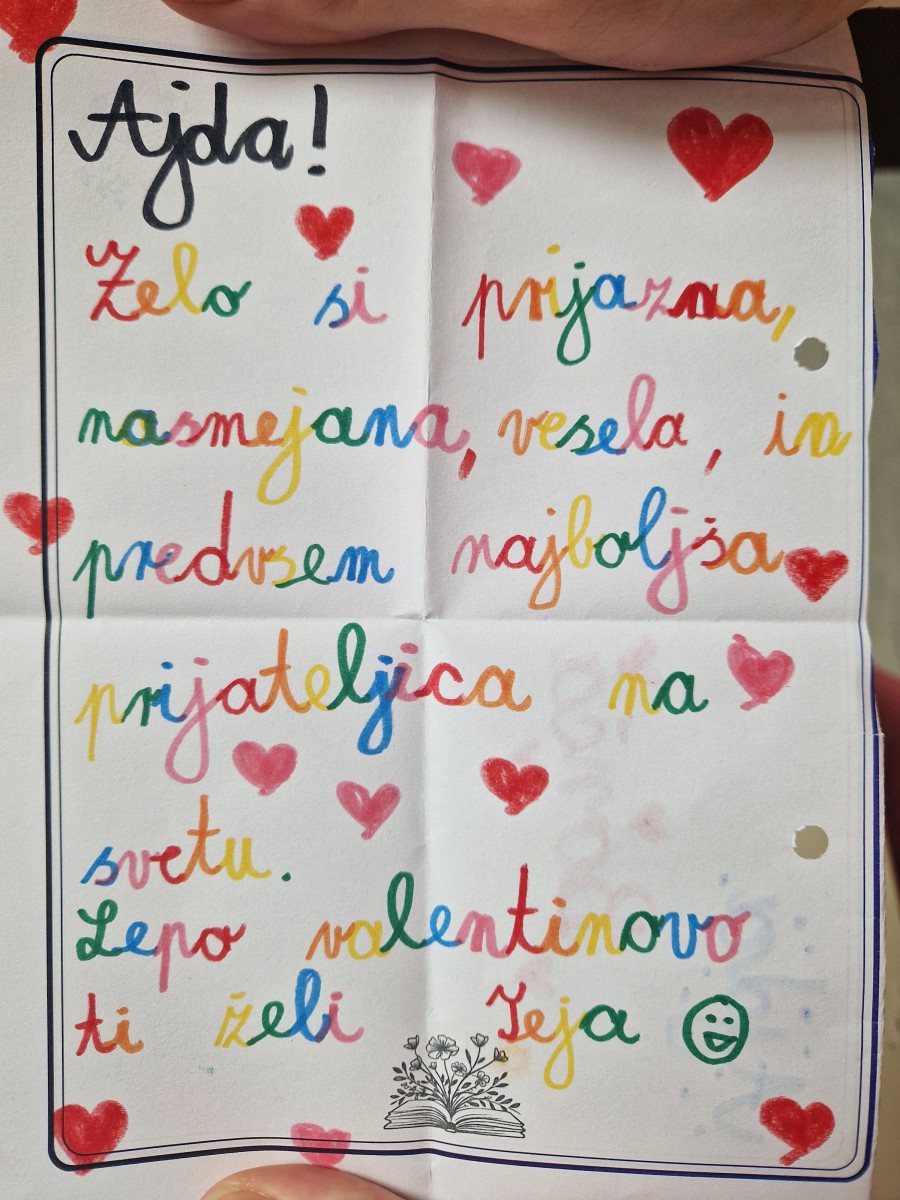 Ajda!
Želo si prijazna,
nasmejana, vesela, in
predvsem najboljša
prijateljica na
svetu.
Lepo valentinovo
ti želi Teja